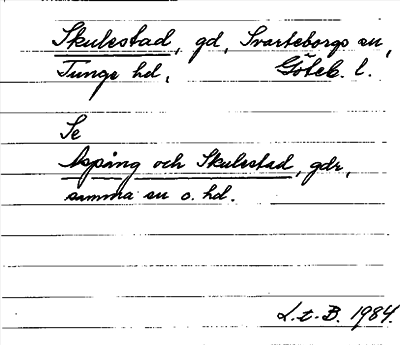 Skulestad, gd, Svarteborgs sn,
Tunge hd, Göteb. l.
Se
Aspång och Skulestad, gdr,
samma sn o. hd.
L.t.B. 1984.